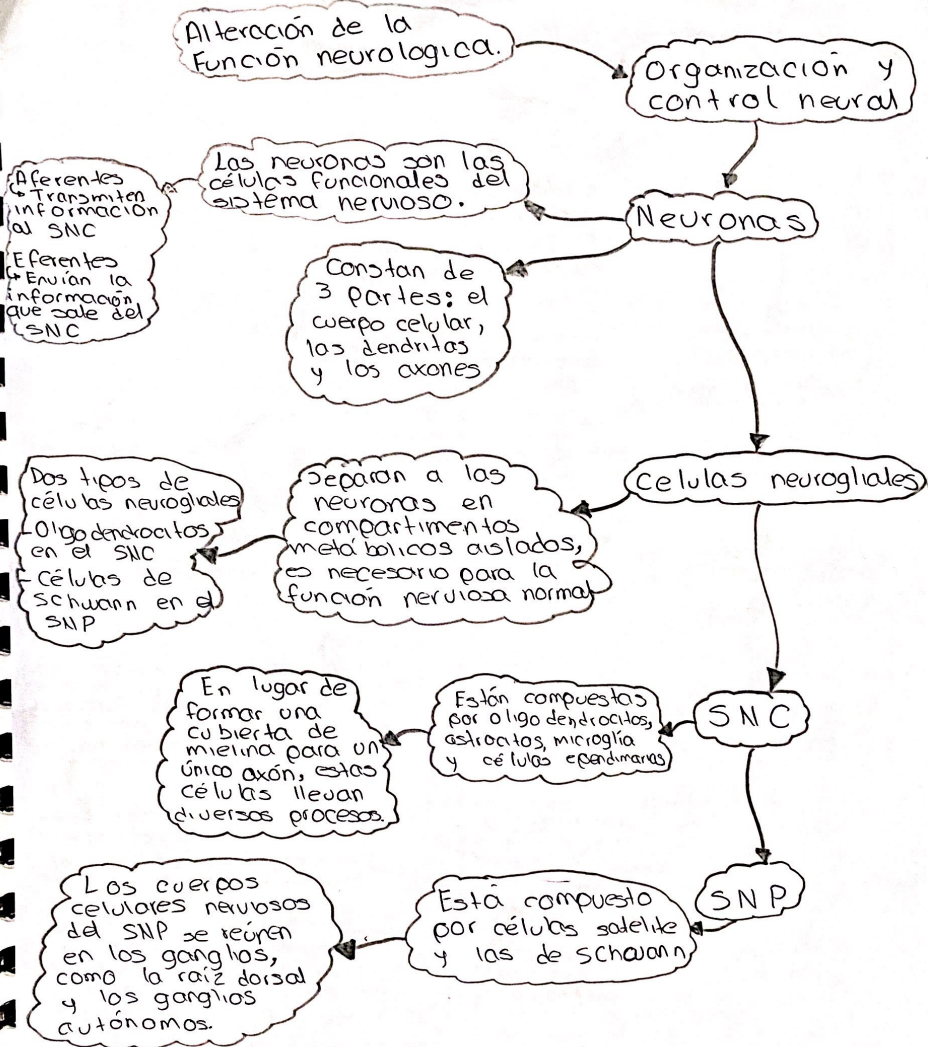 Alteración de la
Función neurologica.
Organización y
control neural
Neuronas
Las neuronas son las
células funcionales del
sistema nervioso.
Aferentes
↳ Transmiten
información
al SNC
Eferentes
↳ Envían la
información
que sale del
SNC
Constan de
3 partes: el
cuerpo celular,
las dendritas
y los axones
Celulas neurogliales
Separan a las
neuronas en
compartimentos
metabolicos aislados,
es necesario para la
función nerviosa normal
Dos tipos de
células neurogliales
-Oligodendrocitos
en el SNC
-Células de
schwann en el
SNP
SNC
Están compuestas
por oligodendrocitos,
astrocitos, microglía
y células ependimarias
En lugar de
formar una
cubierta de
mielina para un
único axón, estas
células llevan
diversos procesos.
SNP
Está compuesto
por células satelite
y las de schwann
Los cuerpos
celulares nerviosos
del SNP se reúnen
en los ganglios,
como la raíz dorsal
y los ganglios
autónomos.